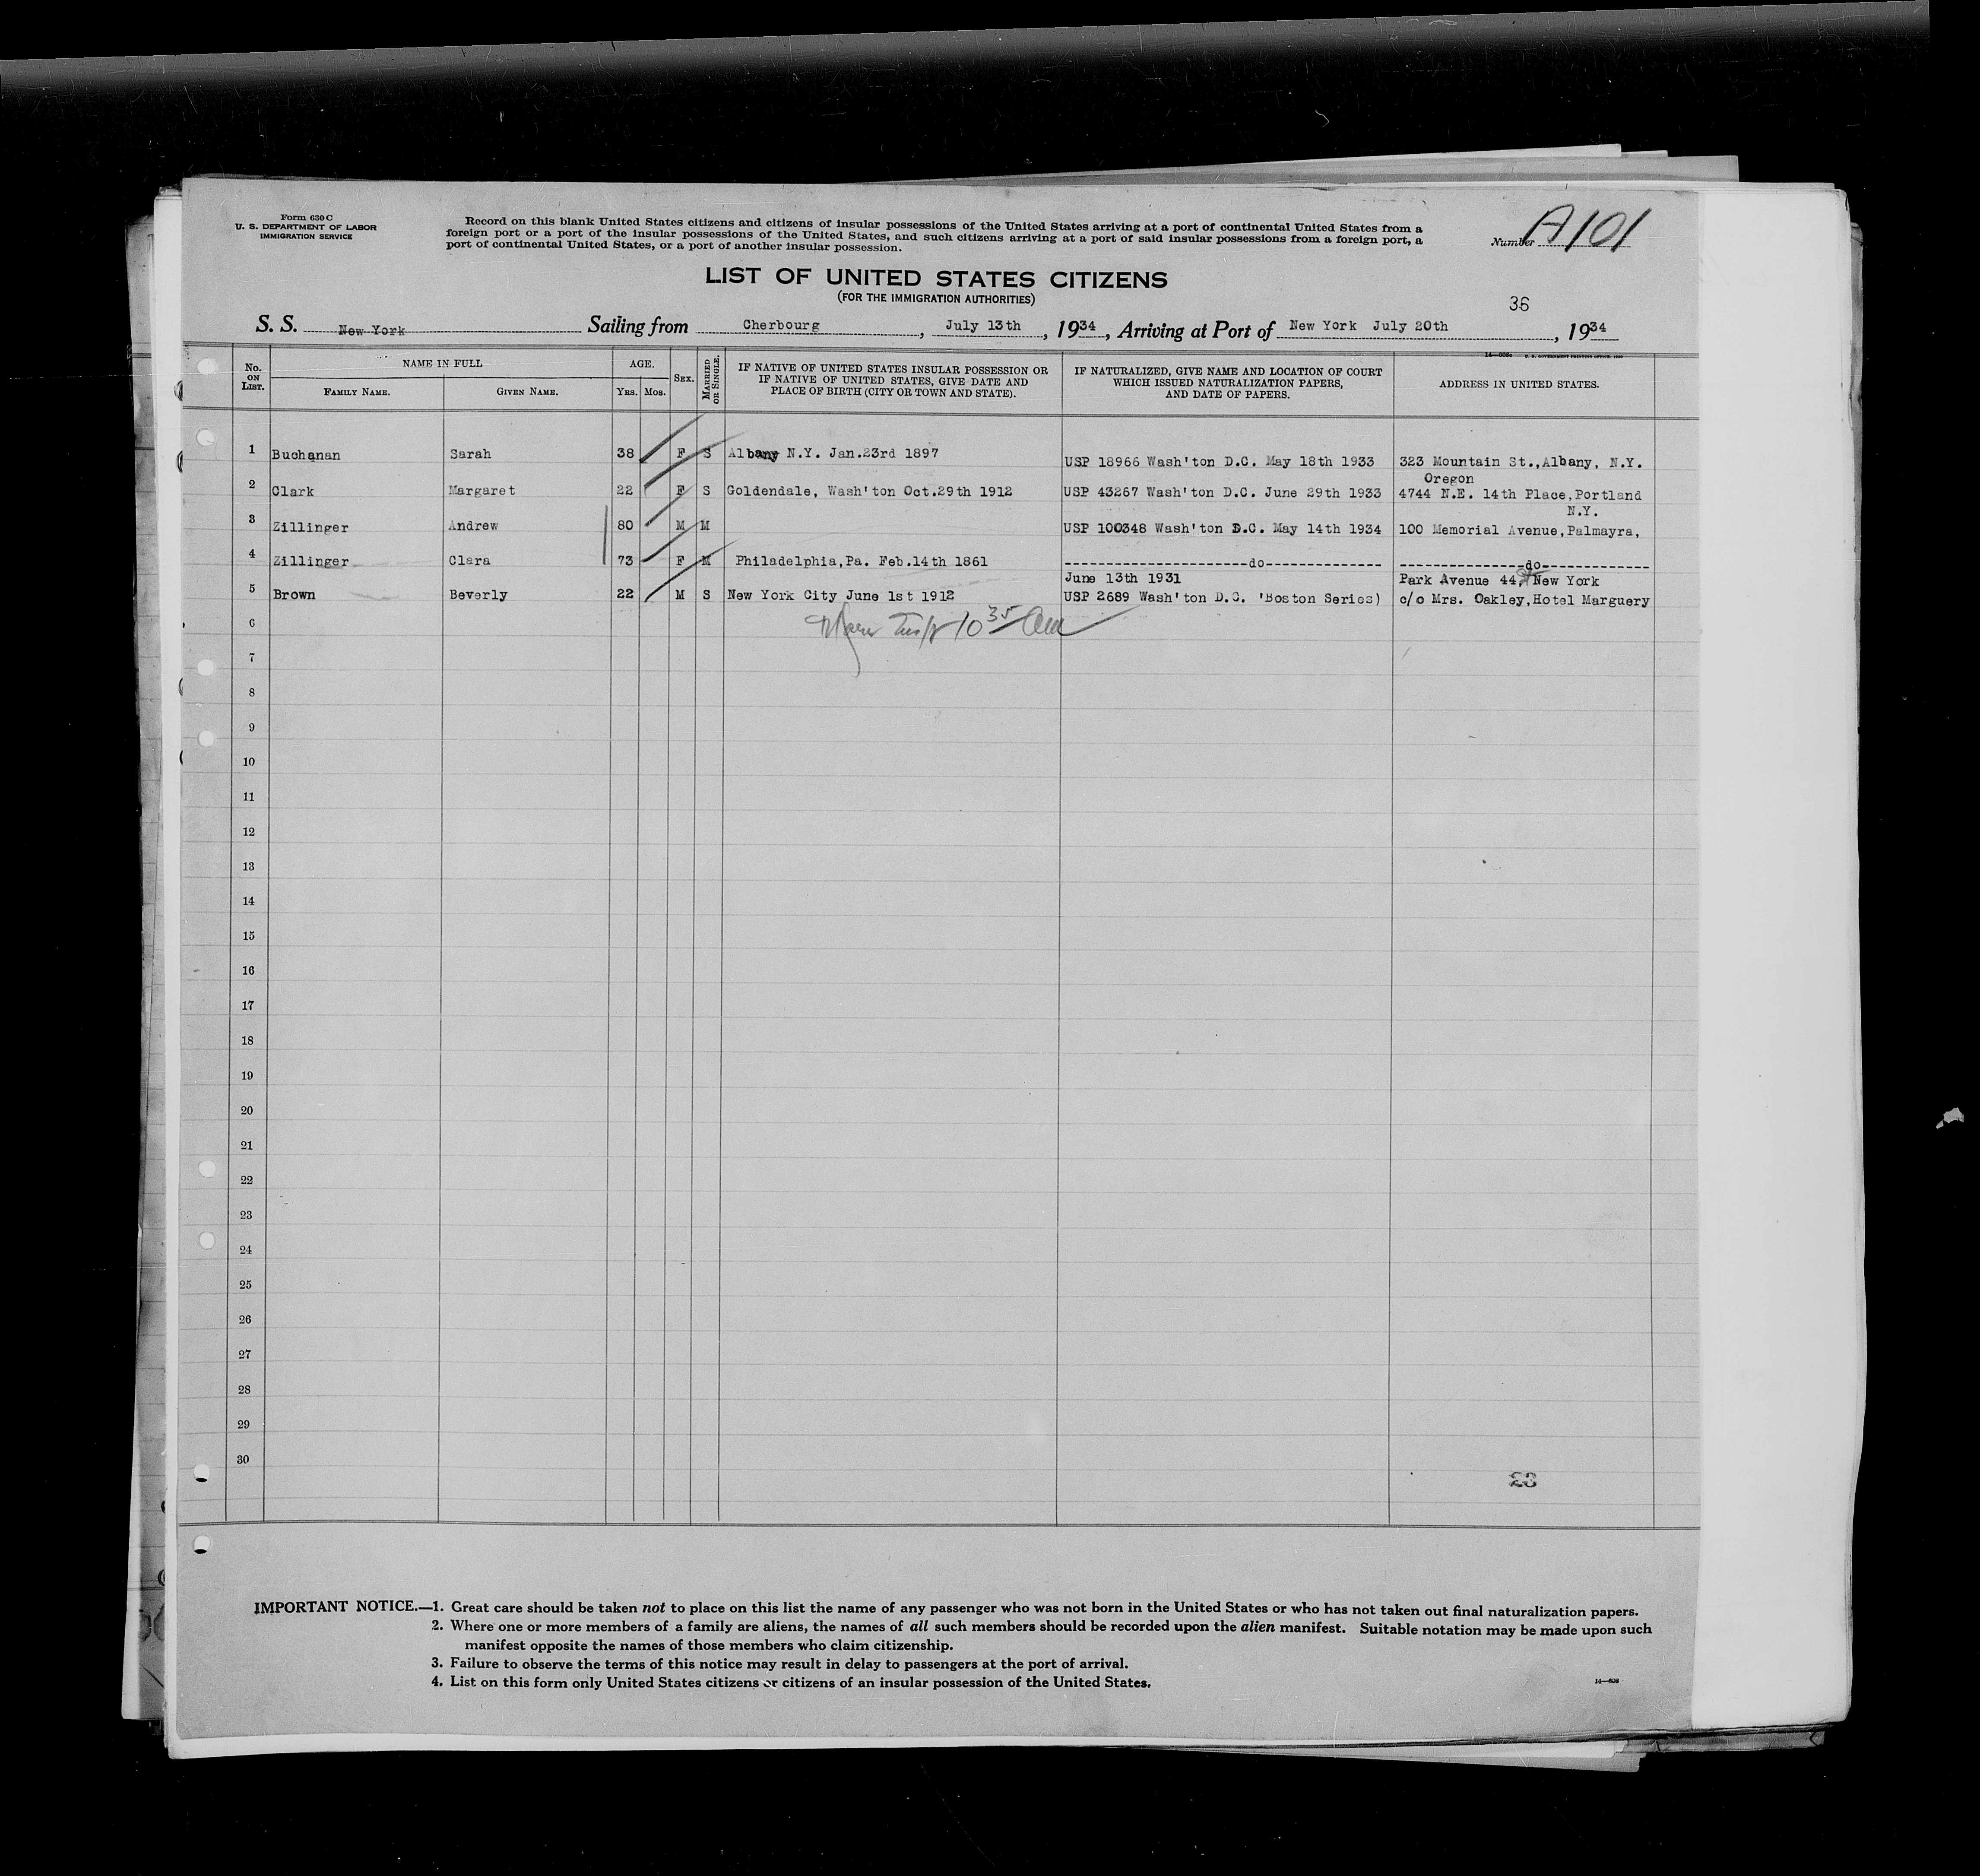 Form 630 C
U. S. DEPARTMENT OF LABOR
IMMIGRATION SERVICE
Record on this blank United States citizens and citizens of insular possessions of the United States arriving at a port of continental United States from a
foreign port or a port of the insular possessions of the United States, and such citizens arriving at a port of said insular possessions from a foreign port, a
port of continental United States, or a port of another insular possession.
Number A101
LIST OF UNITED STATES CITIZENS
(FOR THE IMMIGRATION AUTHORITIES)
36
S. S. New York Sailing from Cherbourg, July 13th, 1934, Arriving at Port of New York July 20th, 1934
No. ON LIST. NAME IN FULL AGE. SEX. MARRIED OR SINGLE. IF NATIVE OF UNITED STATES INSULAR POSSESSION OR IF NATIVE OF UNITED STATES, GIVE DATE AND PLACE OF BIRTH (CITY OR TOWN AND STATE). IF NATURALIZED, GIVE NAME AND LOCATION OF COURT WHICH ISSUED NATURALIZATION PAPERS, AND DATE OF PAPERS. ADDRESS IN UNITED STATES.
FAMILY NAME. GIVEN NAME. YRS. MOS.
1 Buchanan Sarah 38 F S Albany N.Y. Jan.23rd 1897 USP 18966 Wash'ton D.C. May 18th 1933 323 Mountain St.,Albany, N.Y.
Oregon
2 Clark Margaret 22 F S Goldendale, Wash'ton Oct.29th 1912 USP 43267 Wash'ton D.C. June 29th 1933 4744 N.E. 14th Place,Portland
N.Y.
3 Zillinger Andrew 80 M M USP 100348 Wash'ton D.C. May 14th 1934 100 Memorial Avenue,Palmayra,
4 Zillinger Clara 73 F M Philadelphia,Pa. Feb.14th 1861 ----------------------do-------------- ---------------do-------------
June 13th 1931 Park Avenue 44, New York
5 Brown Beverly 22 M S New York City June 1st 1912 USP 2689 Wash'ton D.C. 'Boston Series) c/o Mrs. Oakley,Hotel Marguery
6 10 35 Am
7
8
9
10
11
12
13
14
15
16
17
18
19
20
21
22
23
24
25
26
27
28
29
30
23
IMPORTANT NOTICE.—1. Great care should be taken not to place on this list the name of any passenger who was not born in the United States or who has not taken out final naturalization papers.
2. Where one or more members of a family are aliens, the names of all such members should be recorded upon the alien manifest. Suitable notation may be made upon such
manifest opposite the names of those members who claim citizenship.
3. Failure to observe the terms of this notice may result in delay to passengers at the port of arrival.
4. List on this form only United States citizens or citizens of an insular possession of the United States.